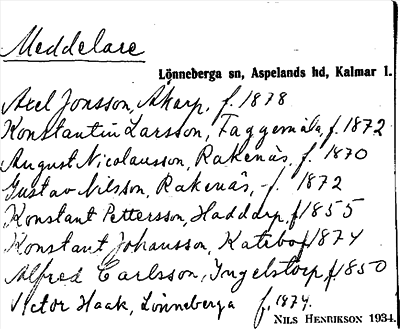 Meddelare
Lönneberga sn, Aspelands hd, Kalmar l.
Axel Jonsson, Åkarp, f. 1878
Konstantin Larsson, Faggemåla, f. 1872
August Nicolausson, Rakenäs, f. 1870
Gustav Nilsson, Rakenäs, f. 1872
Konstant Pettersson, Haddarp, f 1855
Konstant Johansson, Katebo f 1874
Alfred Carlsson, Ingelstorp, f. 1850
Victor Haak, Lönneberga f. 1874.
NILS HENRIKSON 1934.